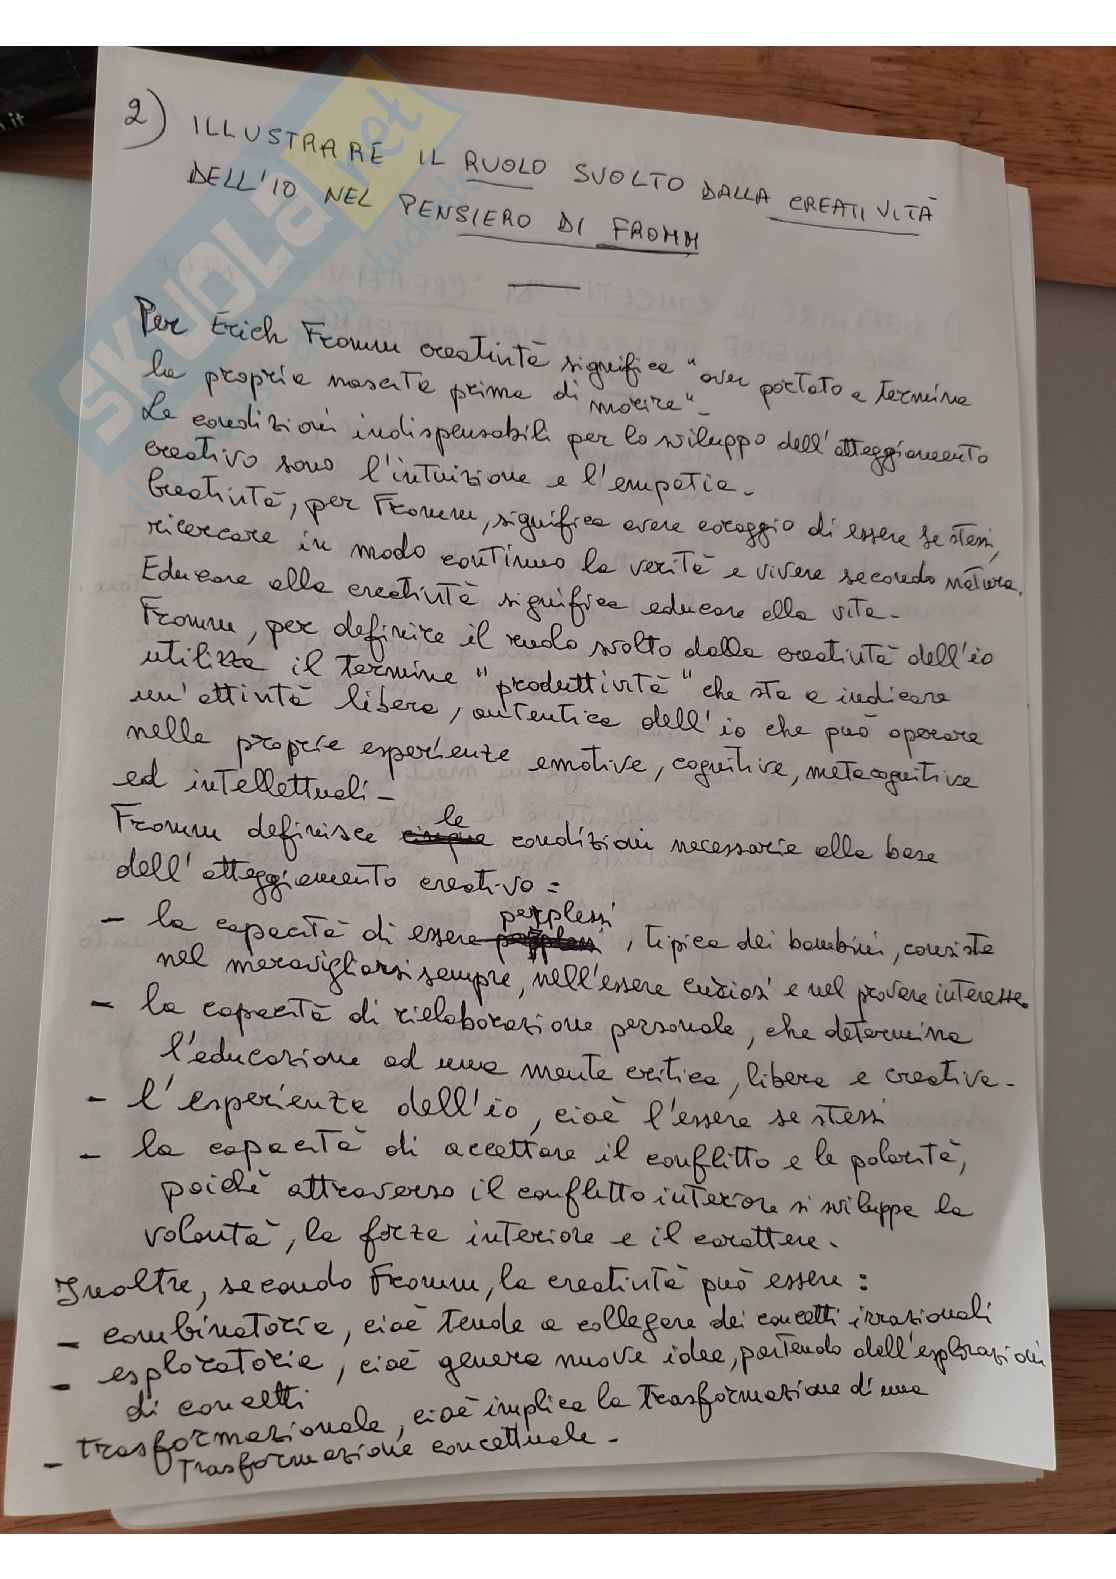 2) ILLUSTRARE IL RUOLO SVOLTO DALLA CREATIVITÀ
DELL'IO NEL PENSIERO DI FROMM
Per Erich Fromm creatività significa "aver portato a termine
la propria nascita prima di morire".
Le condizioni indispensabili per lo sviluppo dell'atteggiamento
creativo sono l'intuizione e l'empatia.
Creatività, per Fromm, significa avere coraggio di essere se stessi,
ricercare in modo continuo la verità e vivere secondo natura.
Educare alla creatività significa educare alla vita.
Fromm, per definire il ruolo svolto dalla creatività dell'io
utilizza il termine "produttività" che sta a indicare
un'attività libera, autentica dell'io che può operare
nelle proprie esperienze emotive, cognitive, metacognitive
ed intellettuali -
Fromm definisce le condizioni necessarie alla base
dell'atteggiamento creativo:
- la capacità di essere perplessi, tipica dei bambini, consiste
nel meravigliarsi sempre, nell'essere curiosi e nel provare interesse.
- la capacità di rielaborazione personale, che determina
l'educazione ad una mente critica, libera e creativa -
- l'esperienza dell'io, cioè l'essere se stessi
- la capacità di accettare il conflitto e la polarità,
poichè attraverso il conflitto interiore si sviluppa la
volontà, la forza interiore e il carattere.
Inoltre, secondo Fromm, la creatività può essere:
- combinatoria, cioè tende a collegare dei concetti irrazionali
- esploratoria, cioè genera nuove idee, partendo dell'esplorazioni
di concetti
- trasformazionale, cioè implica la trasformazione di una
trasformazione concettuale -
SKUOLA.net